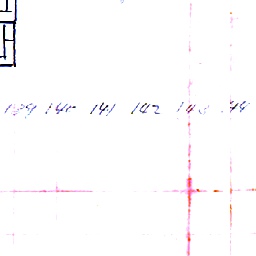 139 140 141 142 143 144